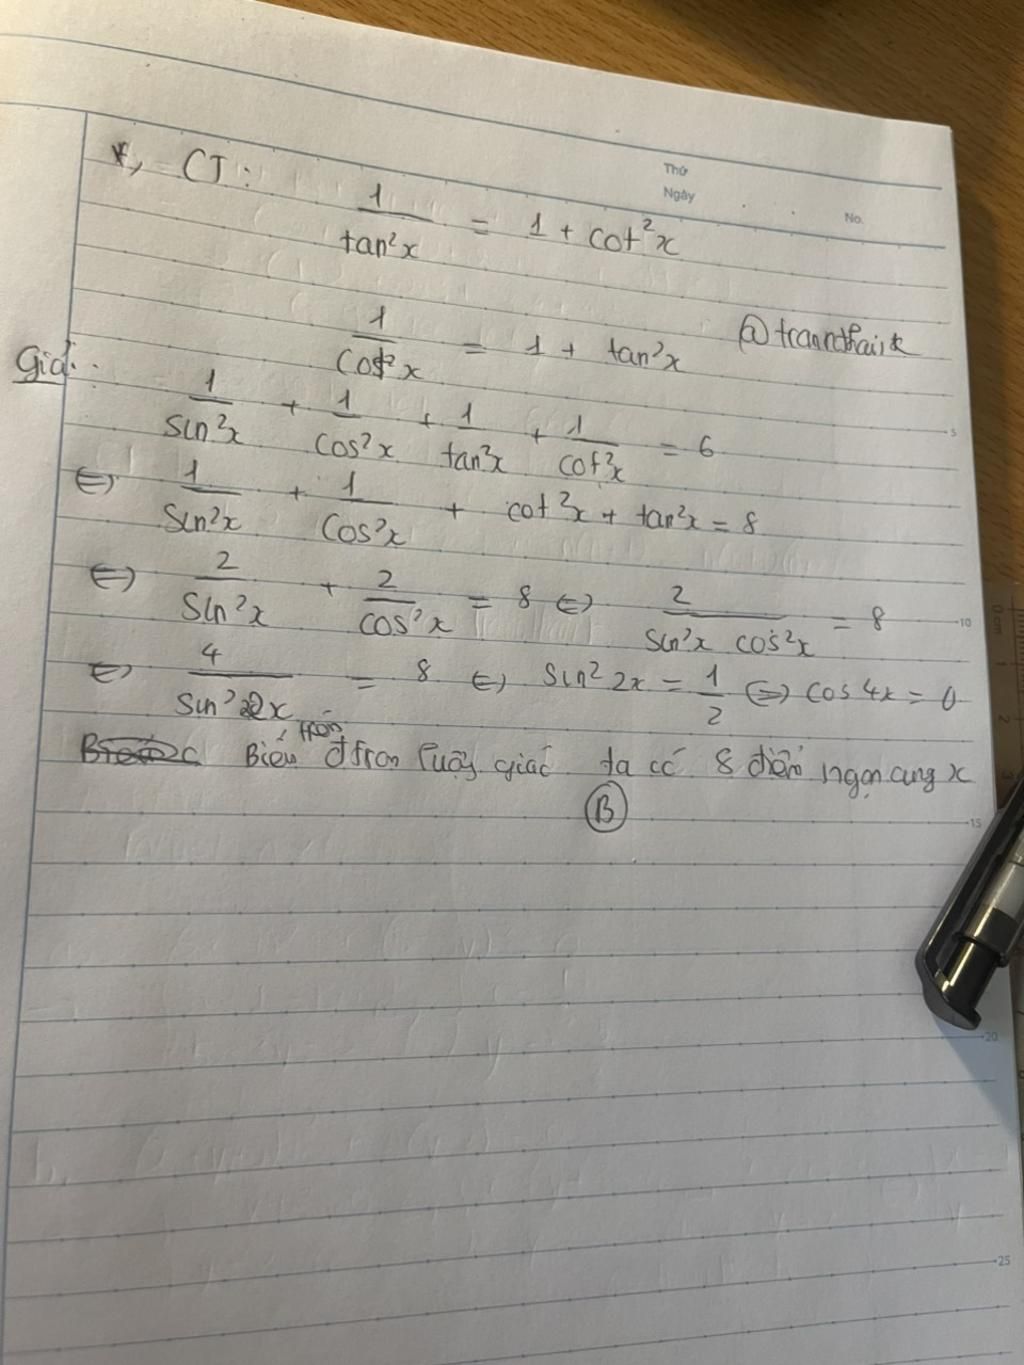 Thứ
Ngày
No.
*, CT:
1/tan²x = 1 + cot²x
1/cos²x = 1 + tan²x
@trannthaisk
Giải:
1/sin²x + 1/cos²x + 1/tan²x + 1/cot²x = 6
⇔ 1/sin²x + 1/cos²x + cot²x + tan²x = 8
⇔ 2/sin²x + 2/cos²x = 8 ⇔ 2/sin²x cos²x = 8
⇔ 4/sin²2x = 8 ⇔ sin²2x = 1/2 ⇔ cos4x = 0
Biểu trên đtròn lượng giác ta có 8 điểm ngọn cung x
B
5
10
15
20
25
0cm
1
2
3